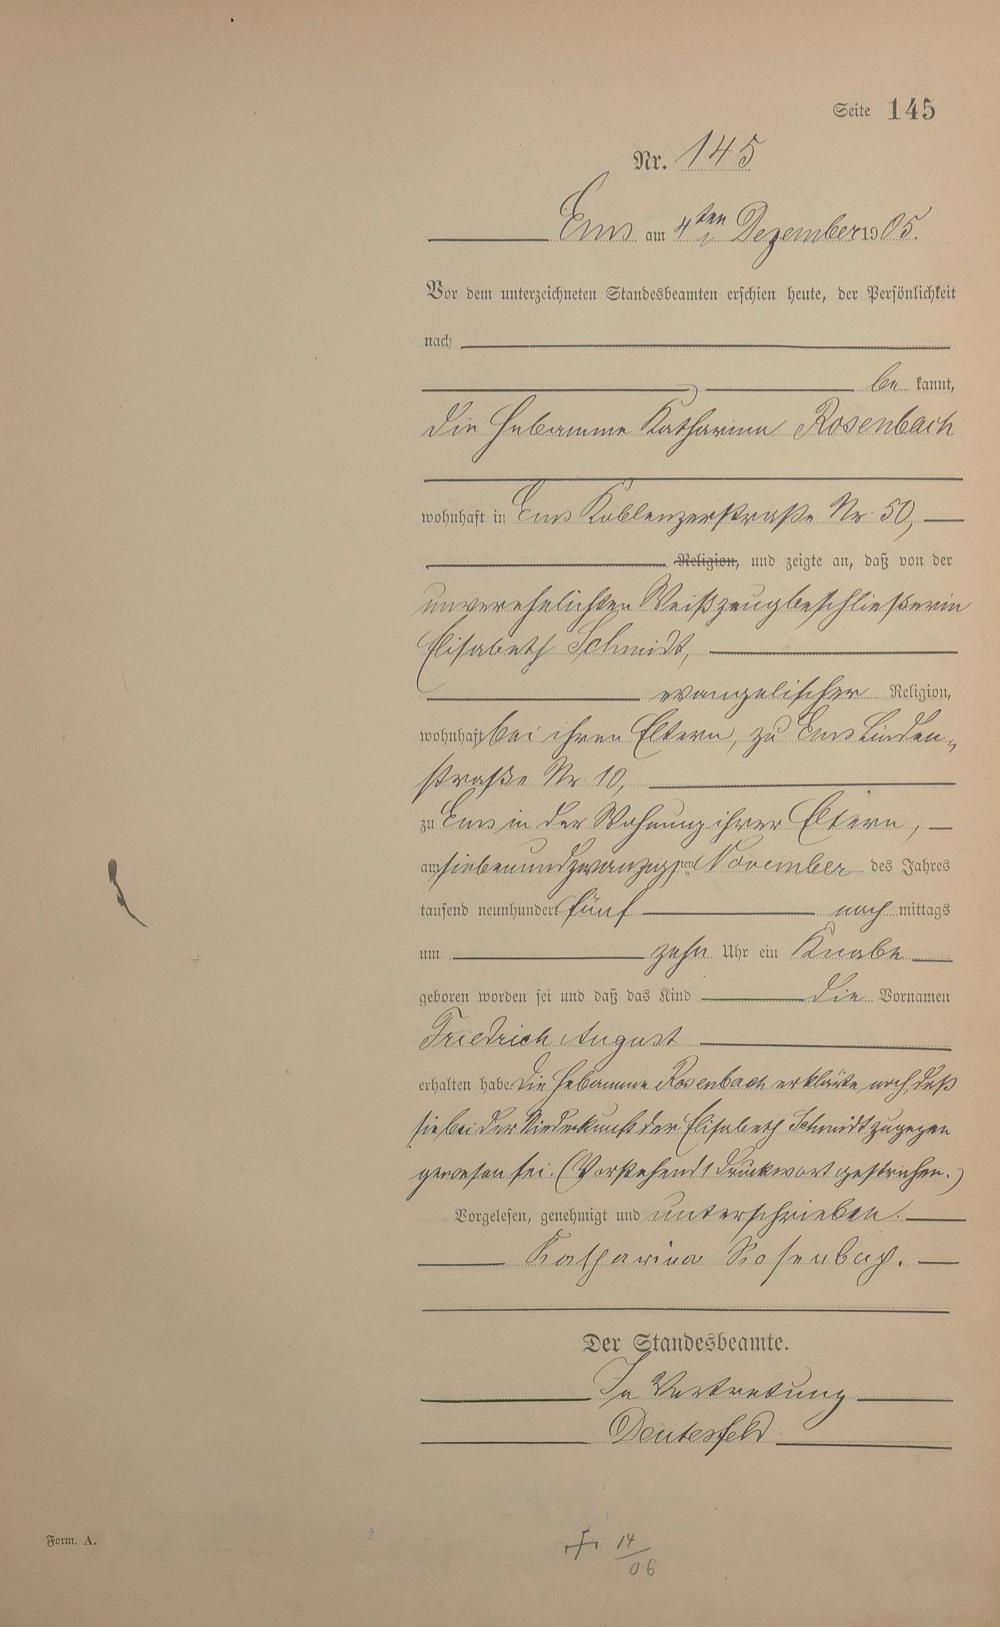 Seite 145
Nr. 145
Ems am 4ten Dezember 1905.
Vor dem unterzeichneten Standesbeamten erschien heute, der Persönlichkeit
nach
be kannt,
die Hebamme Katharina Rosenbach
wohnhaft in Ems Koblenzerstraße Nr. 50,
Religion, und zeigte an, daß von der
unverehelichten Weißzeugbeschließerin
Elisabeth Schmidt,
evangelischer Religion,
wohnhaft bei ihren Eltern, zu Ems Linden-
straße Nr. 10,
zu Ems in der Wohnung ihrer Eltern,
am siebenundzwanzigsten November des Jahres
tausend neunhundert fünf nach mittags
um zehn Uhr ein Knabe
geboren worden sei und daß das Kind die Vornamen
Friedrich August
erhalten habe. Die Hebamme Rosenbach erklärte noch, daß
sie bei der Niederkunft der Elisabeth Schmidt zugegen
gewesen sei. (Vorstehend 1 Druckwort gestrichen.)
Vorgelesen, genehmigt und unterschrieben.
Katharina Rosenbach.
Der Standesbeamte.
In Vertretung
Deutesfeld
Form. A.
14/06